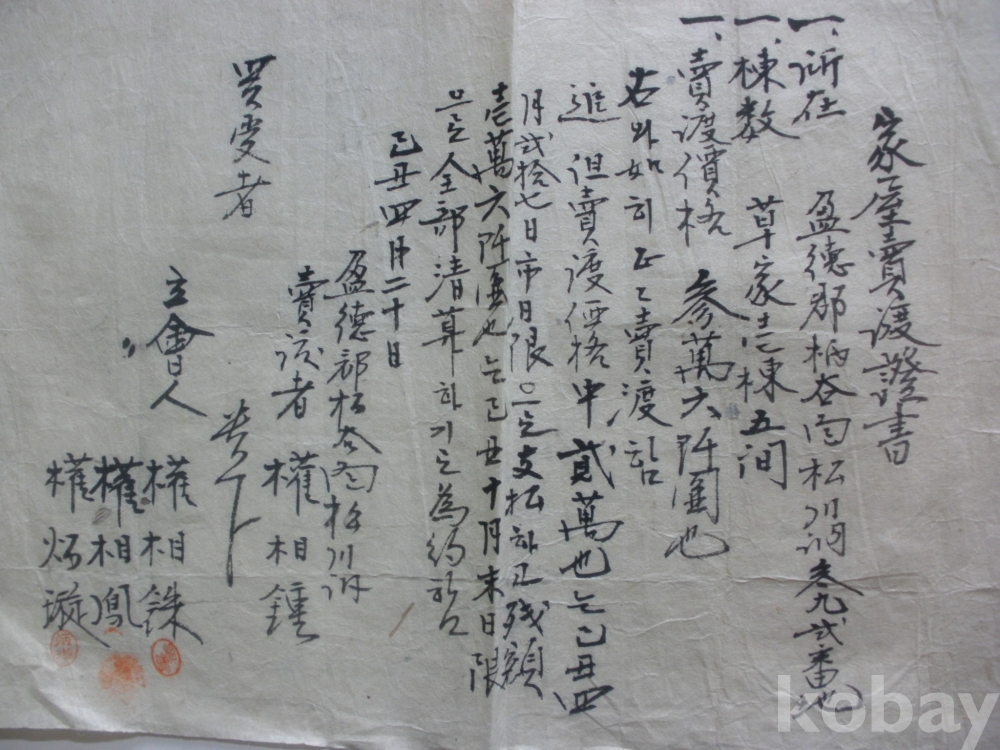 家屋賣渡證書
一、所在 盈德郡柄谷面松川洞参九弐番地
一、棟数 草家壱棟五间
一、賣渡價格 參萬六阡圓也
右와如히正히賣渡함
追 但賣渡価格中貳萬也는己丑四
月弐拾七日市日限으로支払하고残額
壱萬六阡圓也는己丑十月末日限
으로全部清算하기로為約함
己丑四月二十日
盈德郡柄谷面松川洞
賣渡者 權相鍾
買受者 貴下
立會人 權相銖
〃 權相鳳
權炳璇
kobay